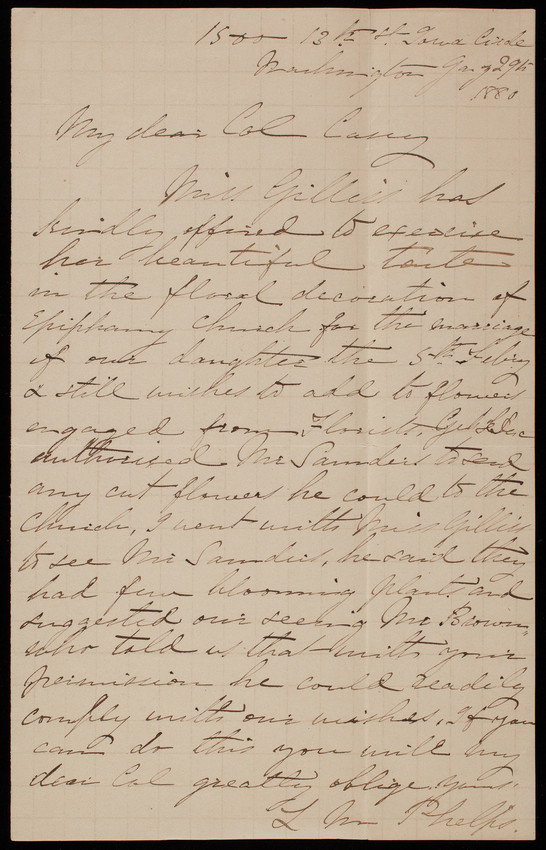 1500 13th St. Iowa Circle
Washington Jany 29th
1880
My dear Col Casey
Miss Gilliss has
kindly offered to exercise
her beautiful taste
in the floral decoration of
Epiphany Church for the marriage
of our daughter the 5th Febry
& still wishes to add to flowers
engaged from Florists, Genl Le Duc
authorised Mr Saunders to send
any cut flowers he could to the
Church, I went with Miss Gilliss
to see Mr Saunders, he said they
had few blooming plants and
suggested our seeing Mr Brown,
who told us that with your
permission he could readily
comply with our wishes, If you
can do this you will my
dear Col greatly oblige yours
L M Phelps.